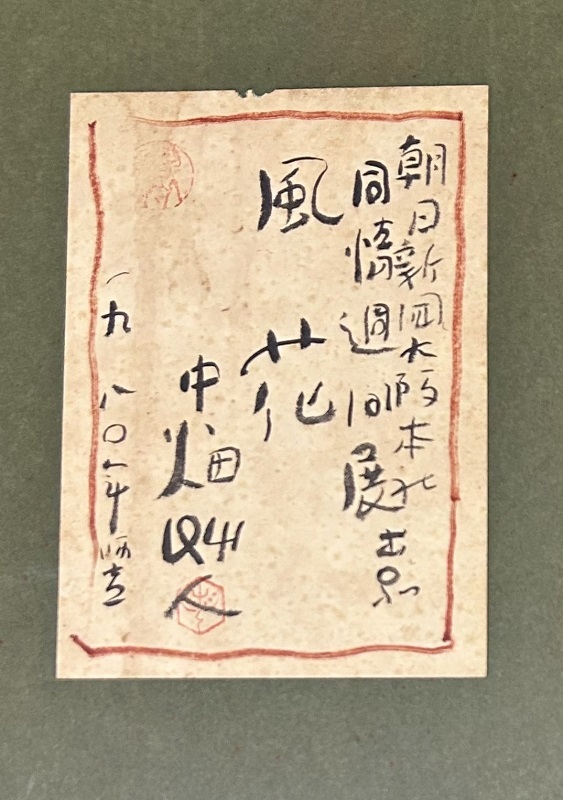 朝日新聞大阪本社
同情週間展出品
風花
中畑艸人
一九八〇年師走